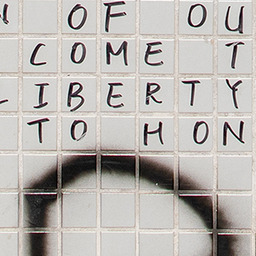 OF OU
COME T
LIBERTY
TO HON